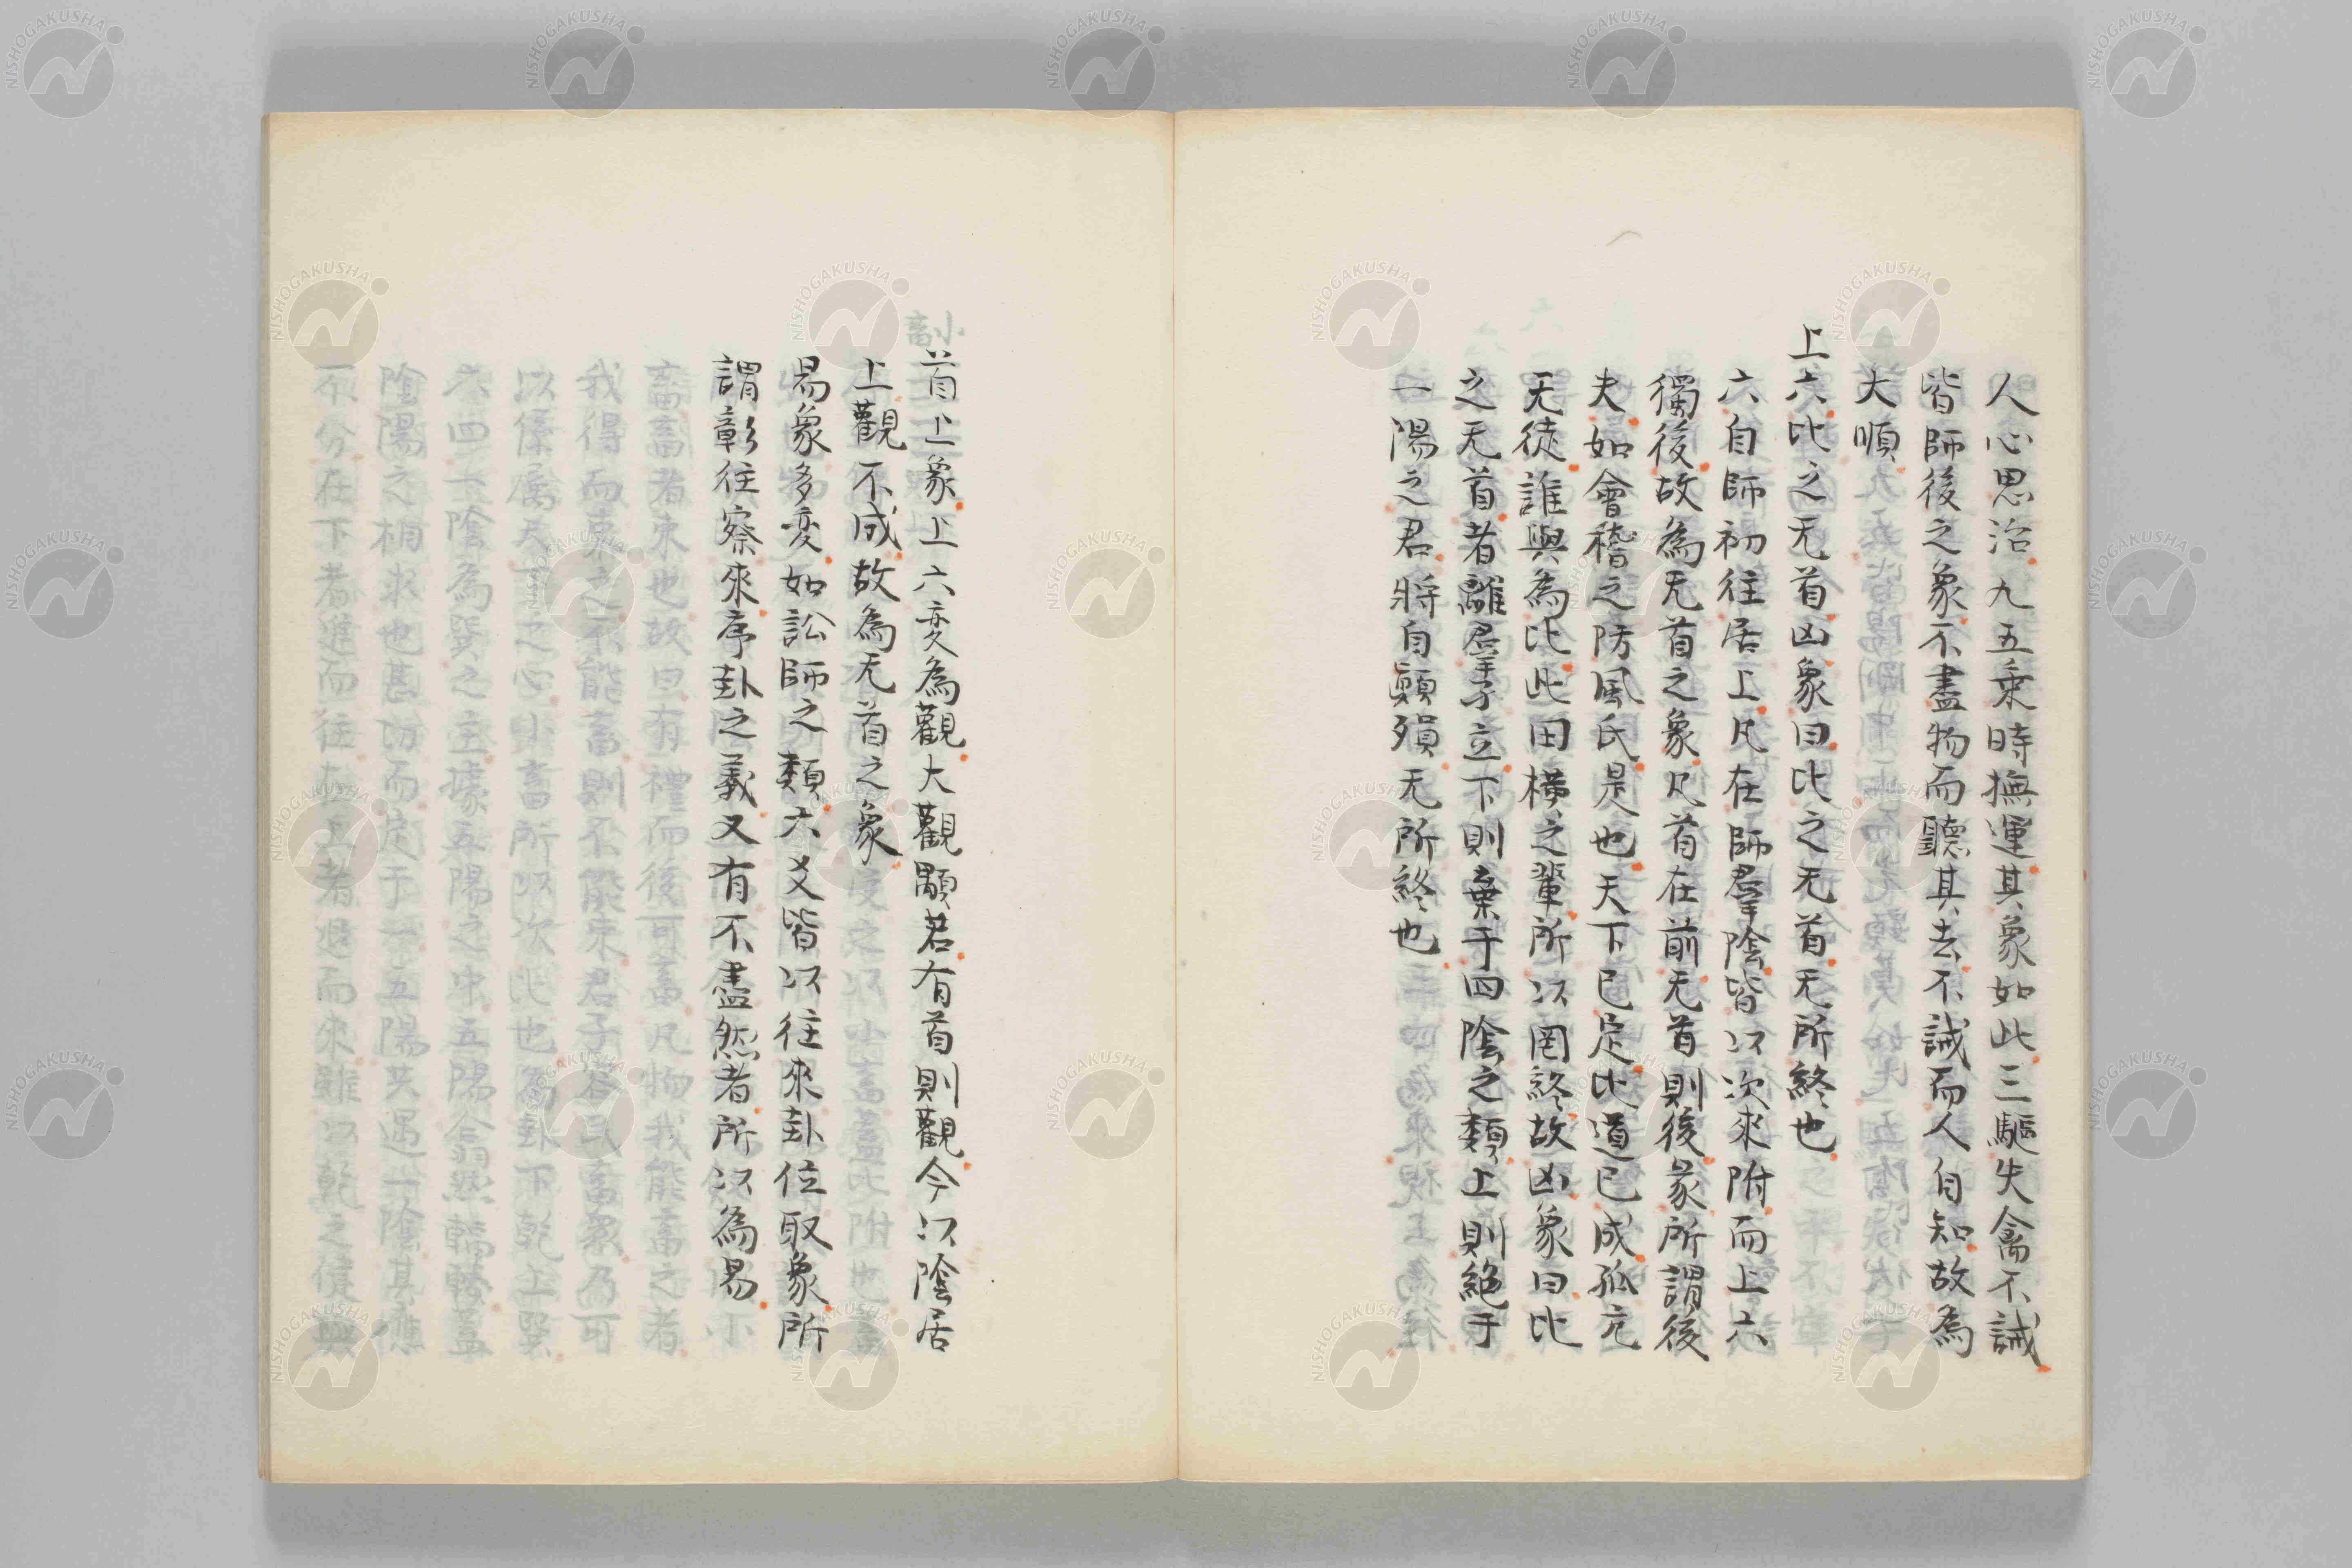 人心思治九五乗時撫運其象如此三驅失禽不誡
皆師後之象不盡物而聽其去不誡而人自知故為
大順
上六比之无首凶象曰比之无首无所終也
六自師初往居上凡在師羣陰皆以次來附而上六
獨後故為无首之象凡首在前无首則後彖所謂後
夫如會稽之防風氏是也天下已定比道已成孤亢
无徒誰與為比此田横之輩所以罔終故凶象曰比
之无首者離羣孑立下則棄于四陰之類上則絶于
一陽之君將自顛殞无所終也
首上象上六変為觀大觀顒若有首則觀今以陰居
上觀不成故為无首之象
易象多変如訟師之類六爻皆以往來卦位取象所
謂彰往察來序卦之義又有不盡然者所以為易
NISHOGAKUSHA